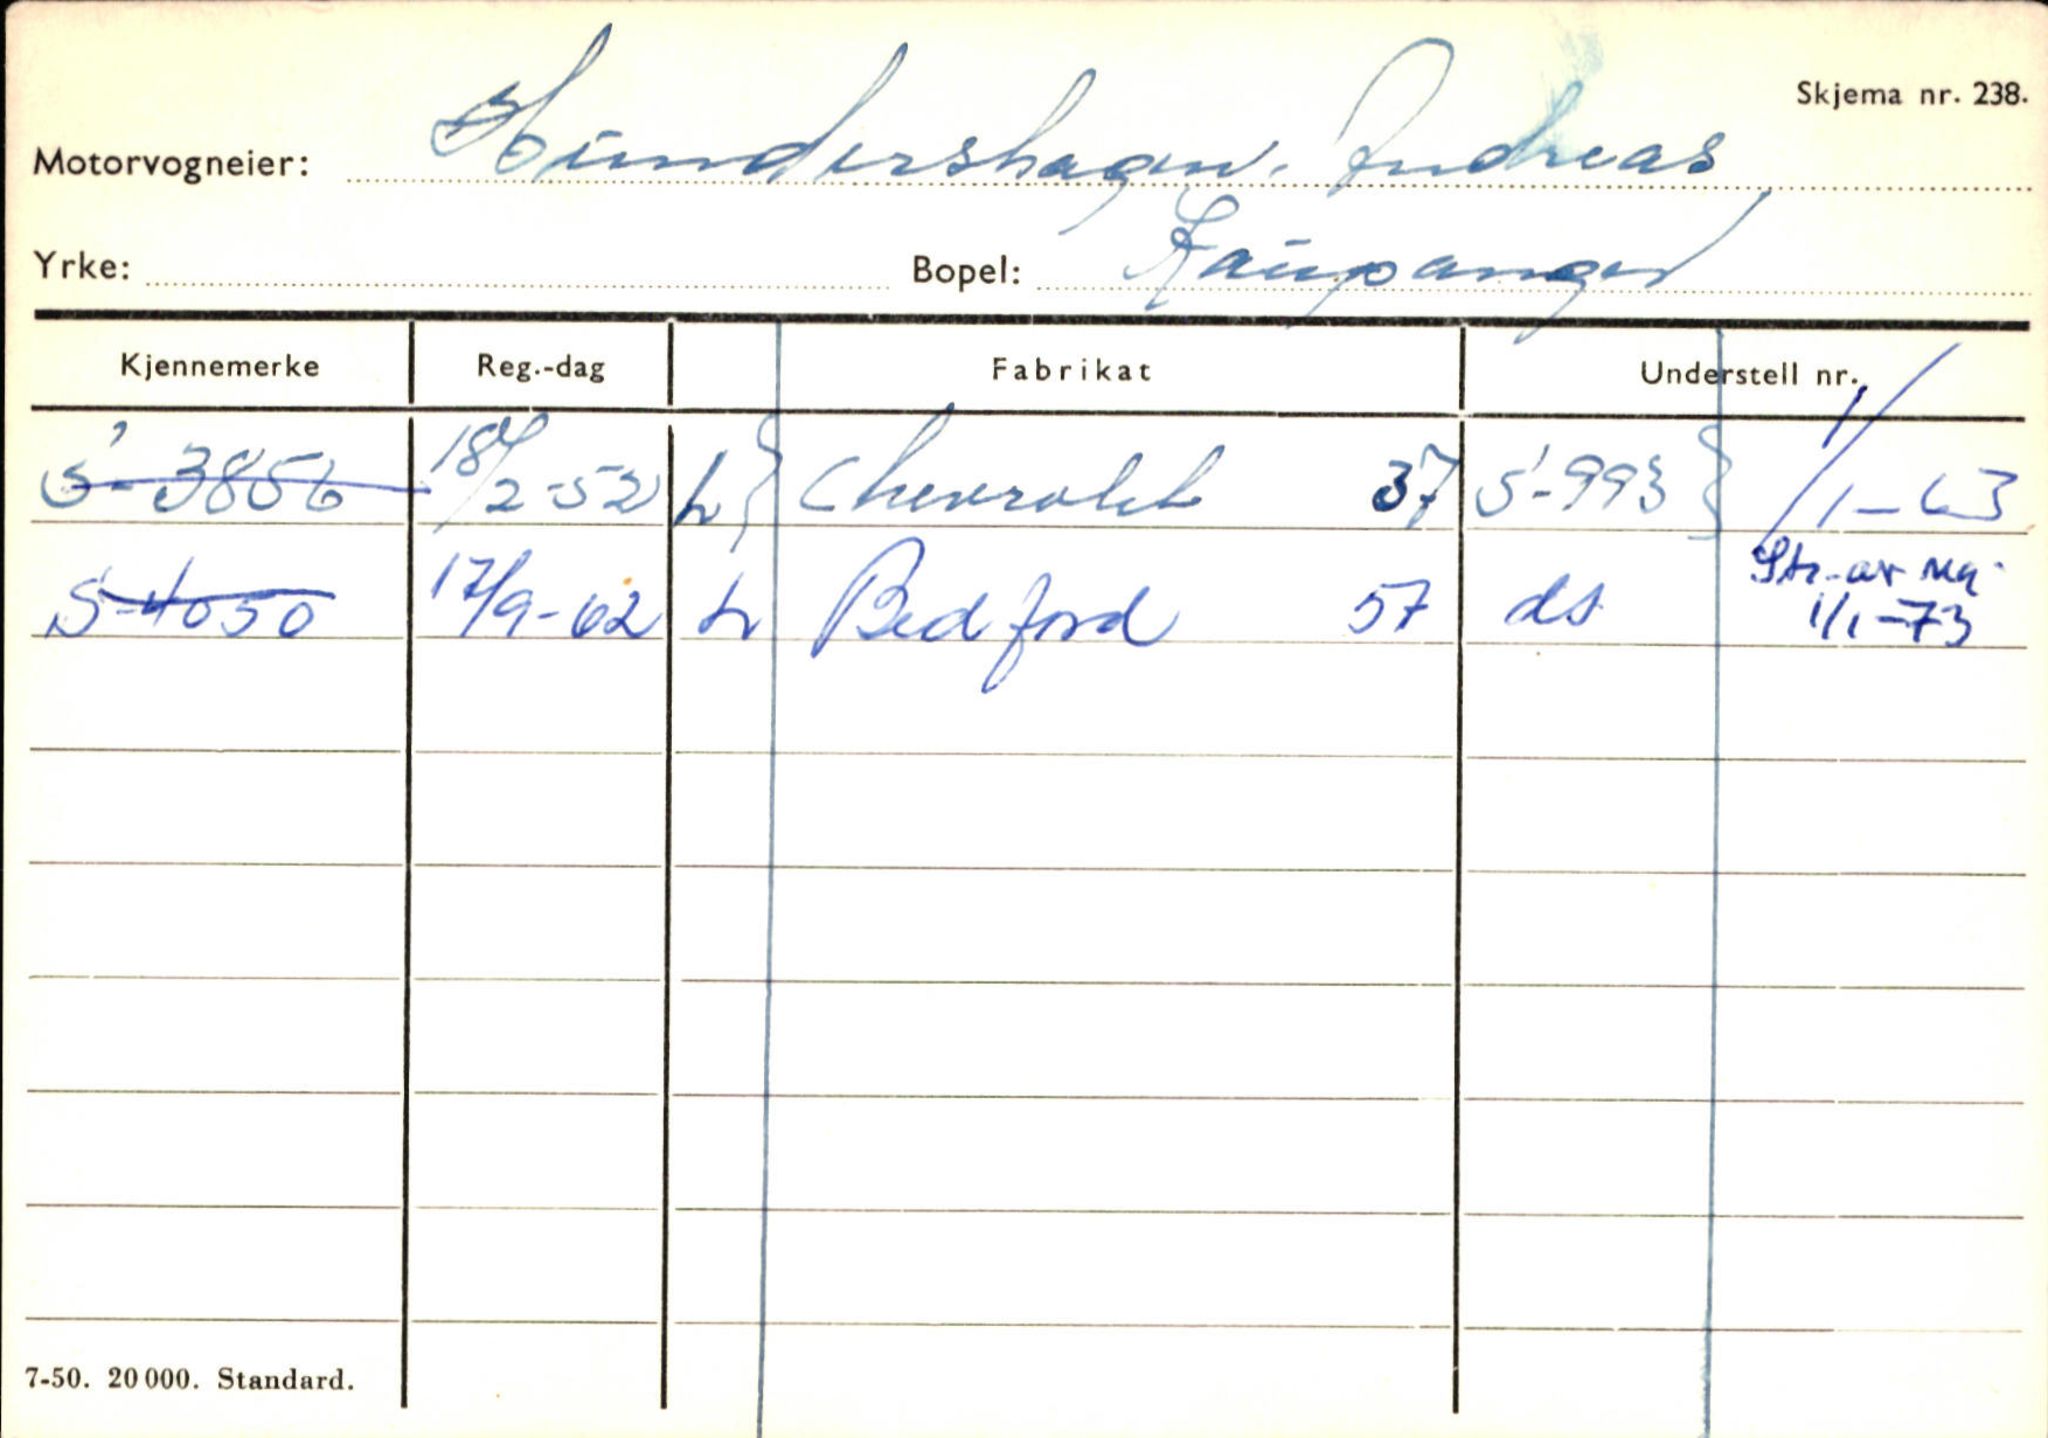 Skjema nr. 238.
Motorvogneier: Hundershagen, Andreas
Yrke: Bopel: Kaupanger
Kjennemerke Reg.-dag Fabrikat Understell nr.
S-3856 18/2-52 L Chevrolet 37 S-993 1/1-63
S-4050 17/9-62 L Bedford 57 ds Str. av reg.
1/1-73
7-50. 20 000. Standard.